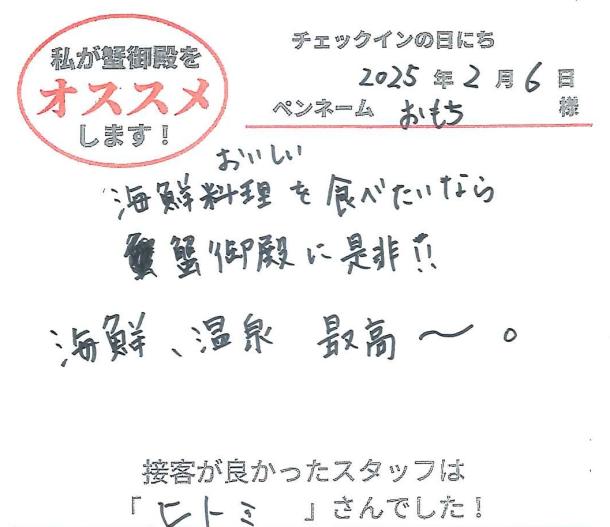 私が蟹御殿を
オススメ
します！
チェックインの日にち
2025年2月6日
ペンネーム おもち 様
おいしい
海鮮料理を食べたいなら
蟹御殿に是非!!
海鮮、温泉 最高〜。
接客が良かったスタッフは
「ヒトミ」さんでした！